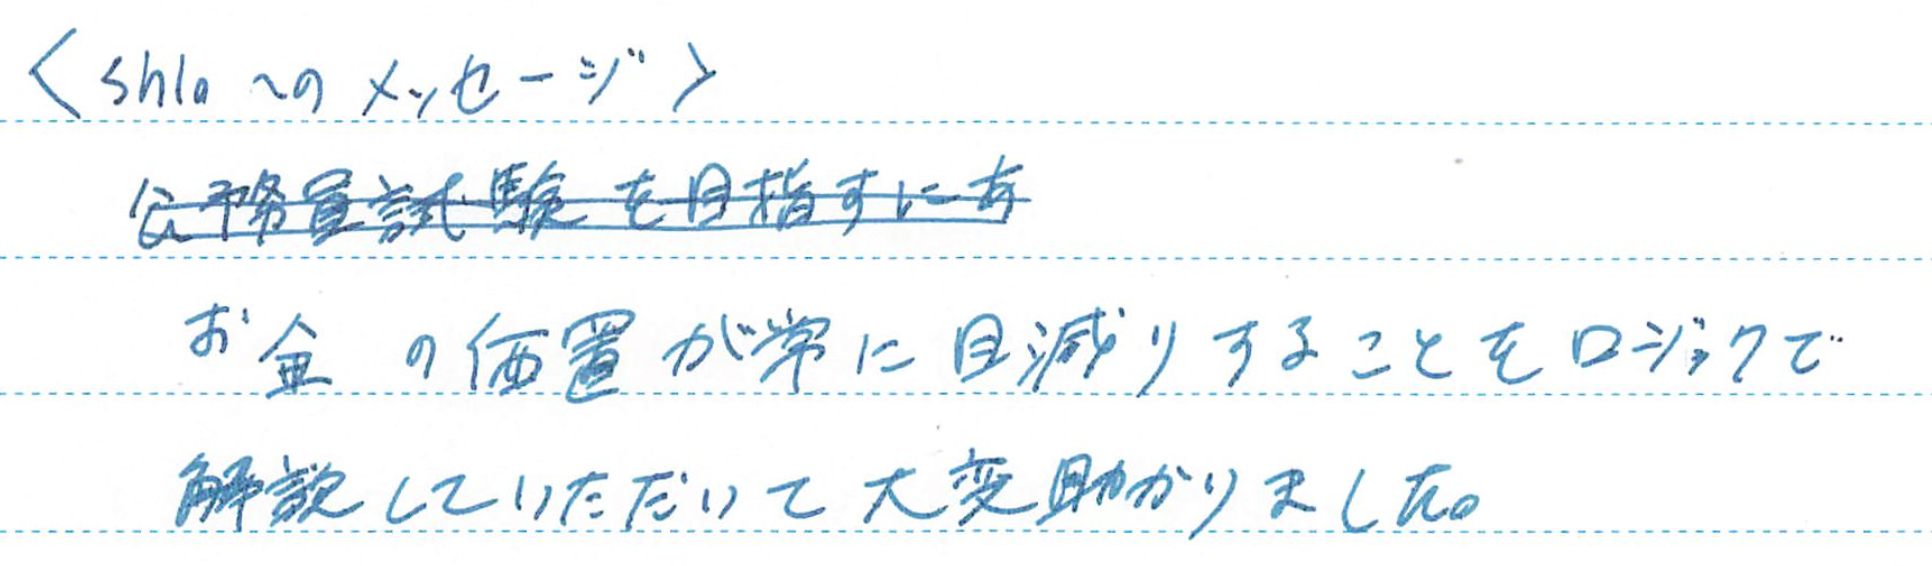 <shlaへのメッセージ>
公務員試験を目指すにあ
お金の価置が常に目減りすることをロジックで
解説していただいて大変助かりました。